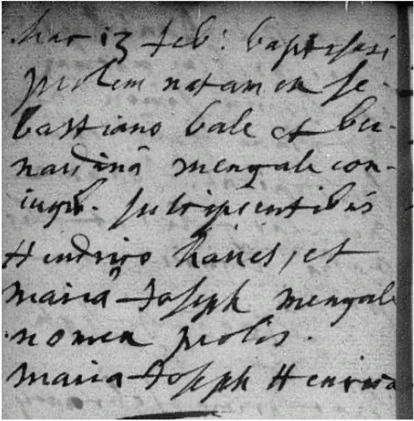 hac 13 feb: baptisavi
prolem natam ex se-
bastiano bale et ber-
nardinâ mengale con-
iugib. suscipientibus
Hendrico hanes, et
mariâ Joseph mengale
nomen prolis.
maria Joseph Henrica